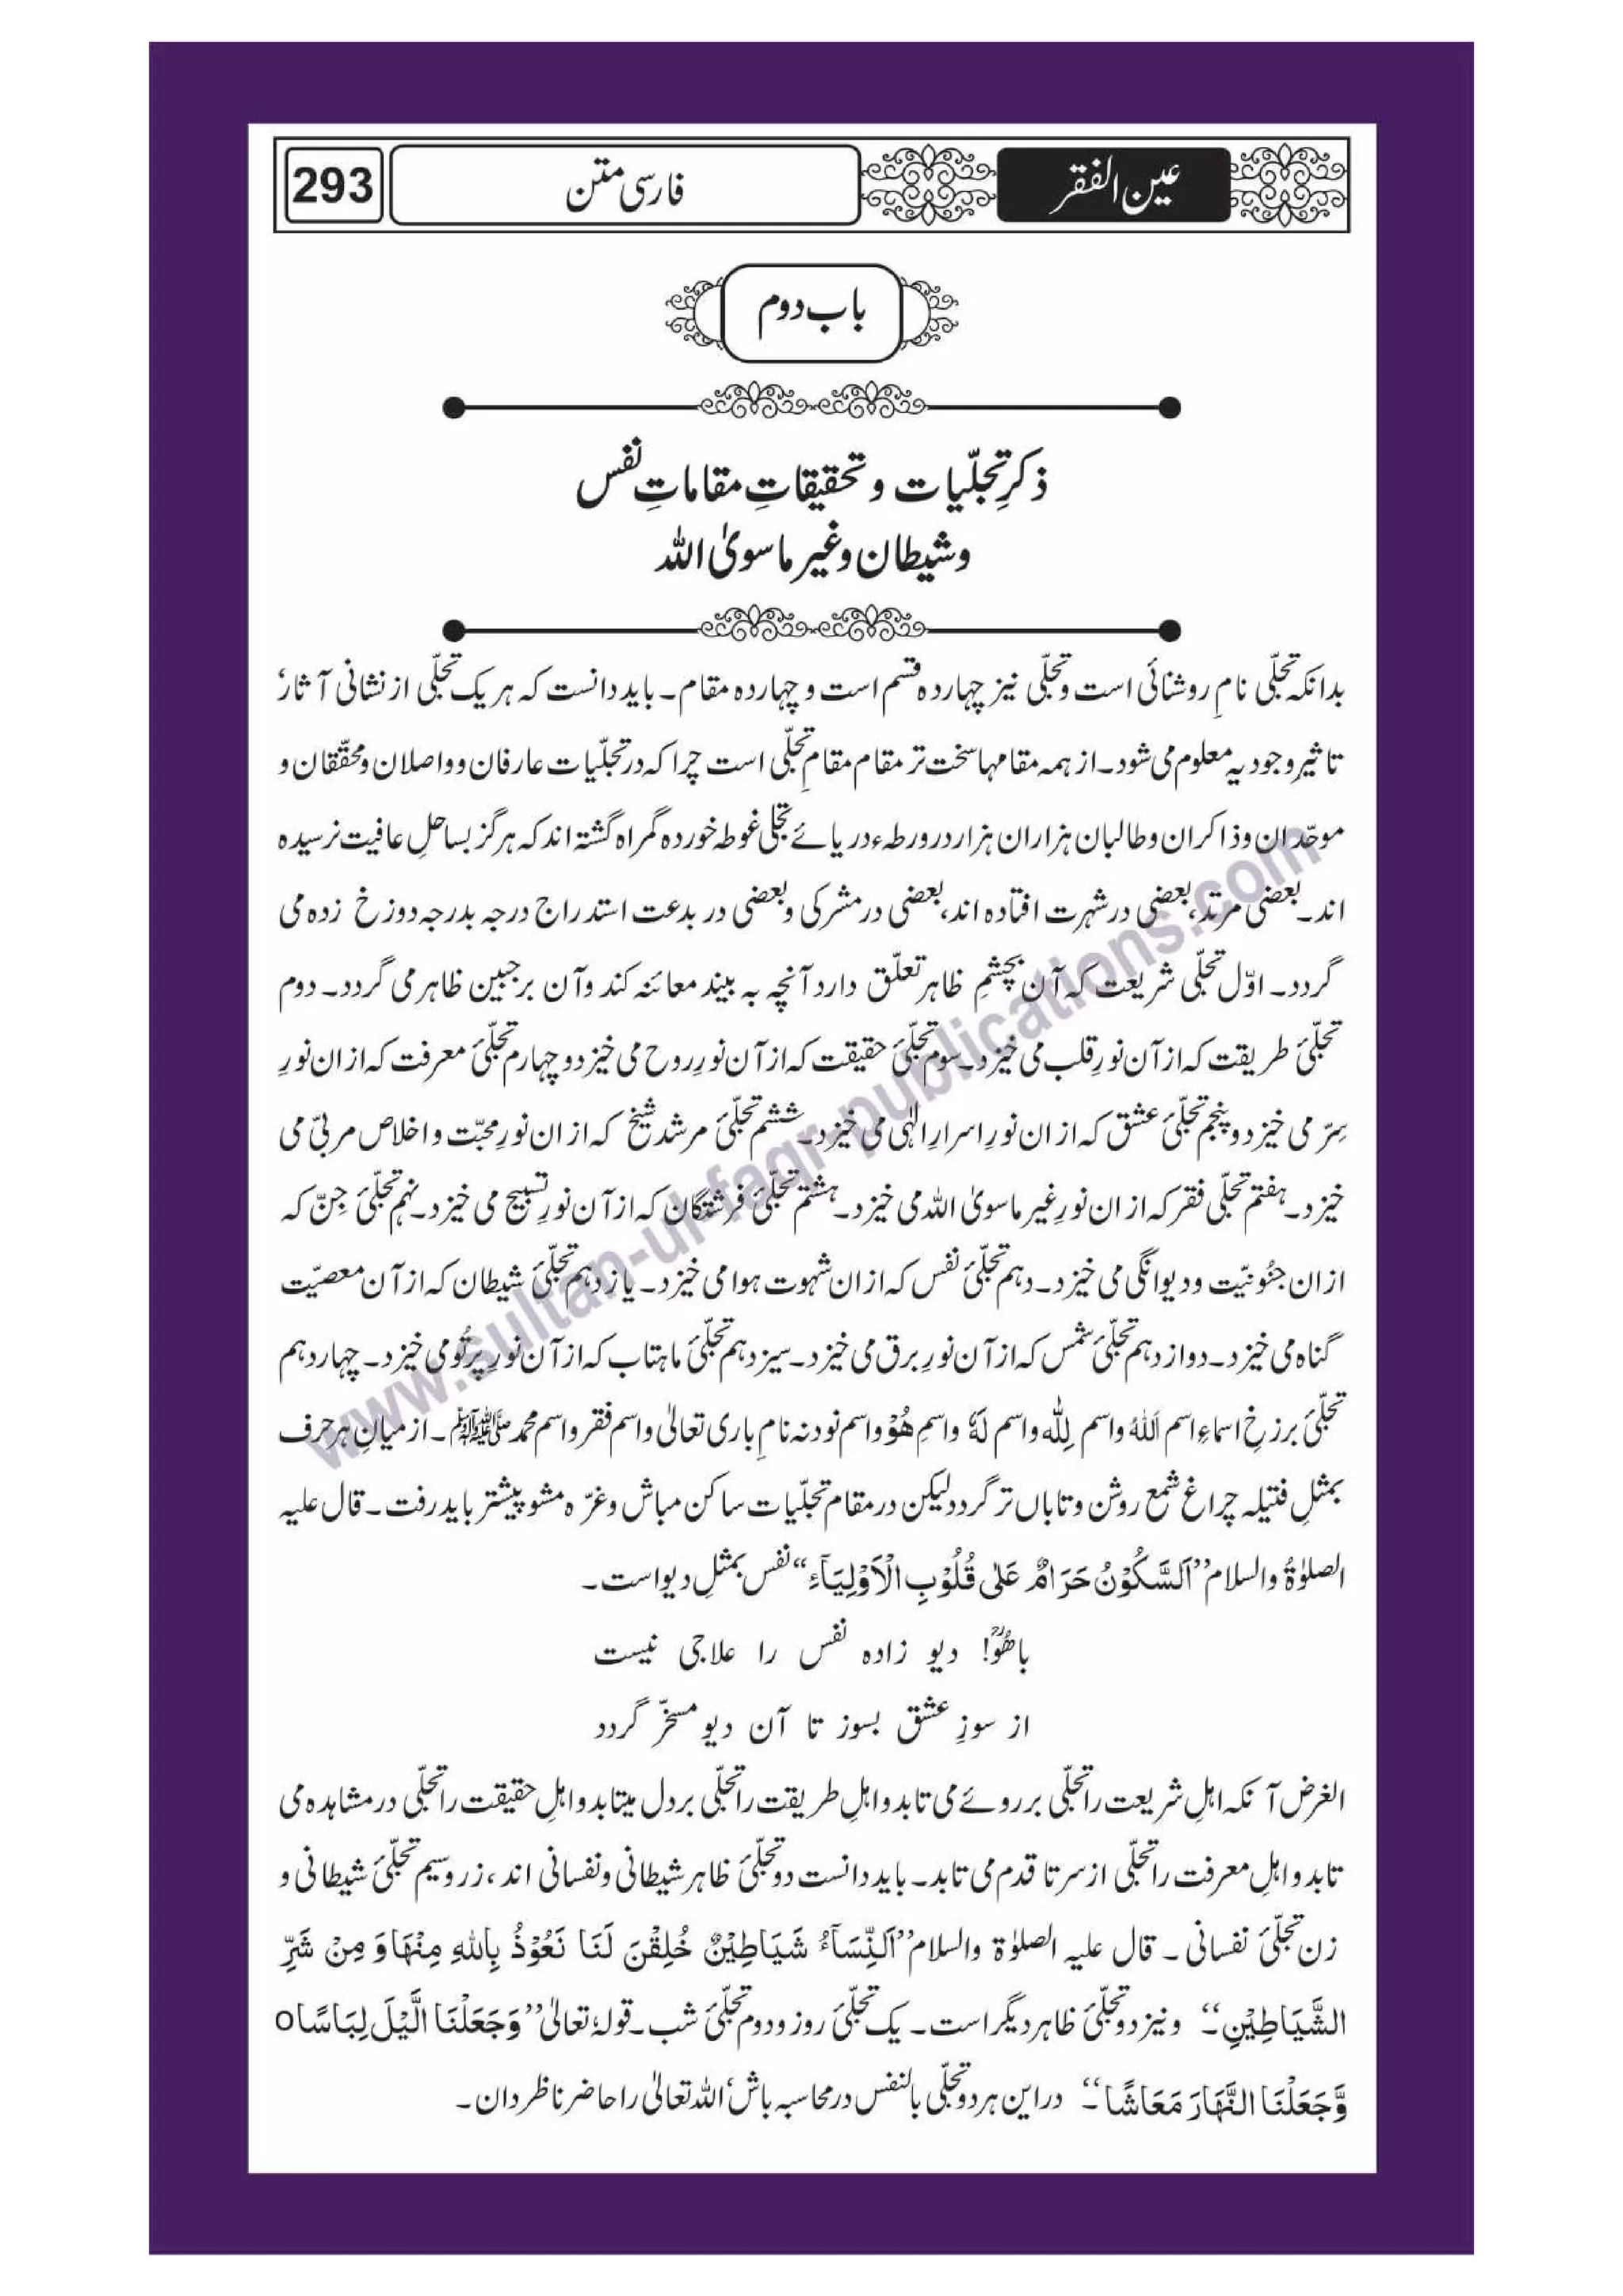 عین الفقر
فارسی متن
293
باب دوم
ذکرِ تجلّیات و تحقیقاتِ مقاماتِ نفس
و شیطان و غیر ماسویٰ اللہ
بدانکہ تجلّی نامِ روشنائی است و تجلّی نیز چہاردہ قسم است و چہاردہ مقام۔ باید دانست کہ ہر یک تجلّی از نشانی آثار،
تاثیرِ وجودیہ معلوم می شود۔ از ہمہ مقامہا سخت تر مقام مقامِ تجلّی است چرا کہ در تجلّیات عارفان و واصلان و محقّقان و
موحّدان و ذاکران و طالبان ہزاران ہزار در ورطہء دریائے تجلی غوطہ خوردہ گمراہ گشتہ اند کہ ہرگز بساحلِ عافیت نرسیدہ
اند۔ بعضی مرتد، بعضی در شہرت افتادہ اند، بعضی در مشرکی و بعضی در بدعت استدراج درجہ بدرجہ دوزخ زدہ می
گردد۔ اوّل تجلّی شریعت کہ آن بچشمِ ظاہر تعلّق دارد آنچہ بہ بیند معائنہ کند و آن بر جبین ظاہر می گردد۔ دوم
تجلّیٔ طریقت کہ از آن نورِ قلب می خیزد۔ سوم تجلّیٔ حقیقت کہ از آن نورِ روح می خیزد و چہارم تجلّیٔ معرفت کہ ازان نورِ
سِرّ می خیزد و پنجم تجلّیٔ عشق کہ ازان نورِ اسرارِ الٰہی می خیزد۔ ششم تجلّیٔ مرشد شیخ کہ ازان نورِ محبّت و اخلاص مربّی می
خیزد۔ ہفتم تجلّی فقر کہ ازان نورِ غیر ماسویٰ اللہ می خیزد۔ ہشتم تجلّیٔ فرشتگان کہ از آن نورِ تسبیح می خیزد۔ نہم تجلّیٔ جِنّ کہ
ازان جنُونیّت و دیوانگی می خیزد۔ دہم تجلّیٔ نفس کہ ازان شہوت ہوا می خیزد۔ یازدہم تجلّیٔ شیطان کہ از آن معصیّت
گناہ می خیزد۔ دوازدہم تجلّیٔ شمس کہ از آن نورِ برق می خیزد۔ سیزدہم تجلّیٔ ماہتاب کہ از آن نورِ پرتُو می خیزد۔ چہاردہم
تجلّیٔ برزخِ اسماءِ اسم اَللّٰہُ و اسم لِلّٰہ و اسم لَہٗ و اسمِ ھُوْ و اسم نود نہ نامِ باری تعالیٰ و اسم فقر و اسم محمد ﷺ۔ از میانِ ہر حرف
بمثلِ فتیلہ چراغ شمع روشن و تاباں تر گردد لیکن در مقام تجلّیات ساکن مباش و غرّہ مشو پیشتر باید رفت۔ قال علیہ
الصلوٰۃُ والسلام ’’اَلسَّکُوْنُ حَرَامٌ عَلٰی قُلُوْبِ الْاَوْلِیَآءِ‘‘ نفس بمثلِ دیو است۔
باھُوؒ! دیو زادہ نفس را علاجی نیست
از سوزِ عشق بسوز تا آن دیو مسخّر گردد
الغرض آنکہ اہلِ شریعت را تجلّی بر روئے می تابد و اہلِ طریقت را تجلّی بر دل میتابد و اہلِ حقیقت را تجلّی در مشاہدہ می
تابد و اہلِ معرفت را تجلّی از سر تا قدم می تابد۔ باید دانست دو تجلّیٔ ظاہر شیطانی و نفسانی اند، زر و سیم تجلّیٔ شیطانی و
زن تجلّیٔ نفسانی۔ قال علیہ الصلوٰۃ والسلام ’’اَلنِّسَآءُ شَیَاطِیْنٌ خُلِقْنَ لَنَا نَعُوْذُ بِاللّٰہِ مِنْھَا وَ مِنْ شَرِّ
الشَّیَاطِیْنِ۔‘‘ و نیز دو تجلّیٔ ظاہر دیگر است۔ یک تجلّیٔ روز و دوم تجلّیٔ شب۔ قولہٗ تعالیٰ ’’وَجَعَلْنَا الَّیْلَ لِبَاسًا o
وَّجَعَلْنَا النَّهَارَ مَعَاشًا۔‘‘ در این ہر دو تجلّی بالنفس در محاسبہ باش، اللہ تعالیٰ را حاضر ناظر دان۔
www.sultan-ul-faqr-publications.com